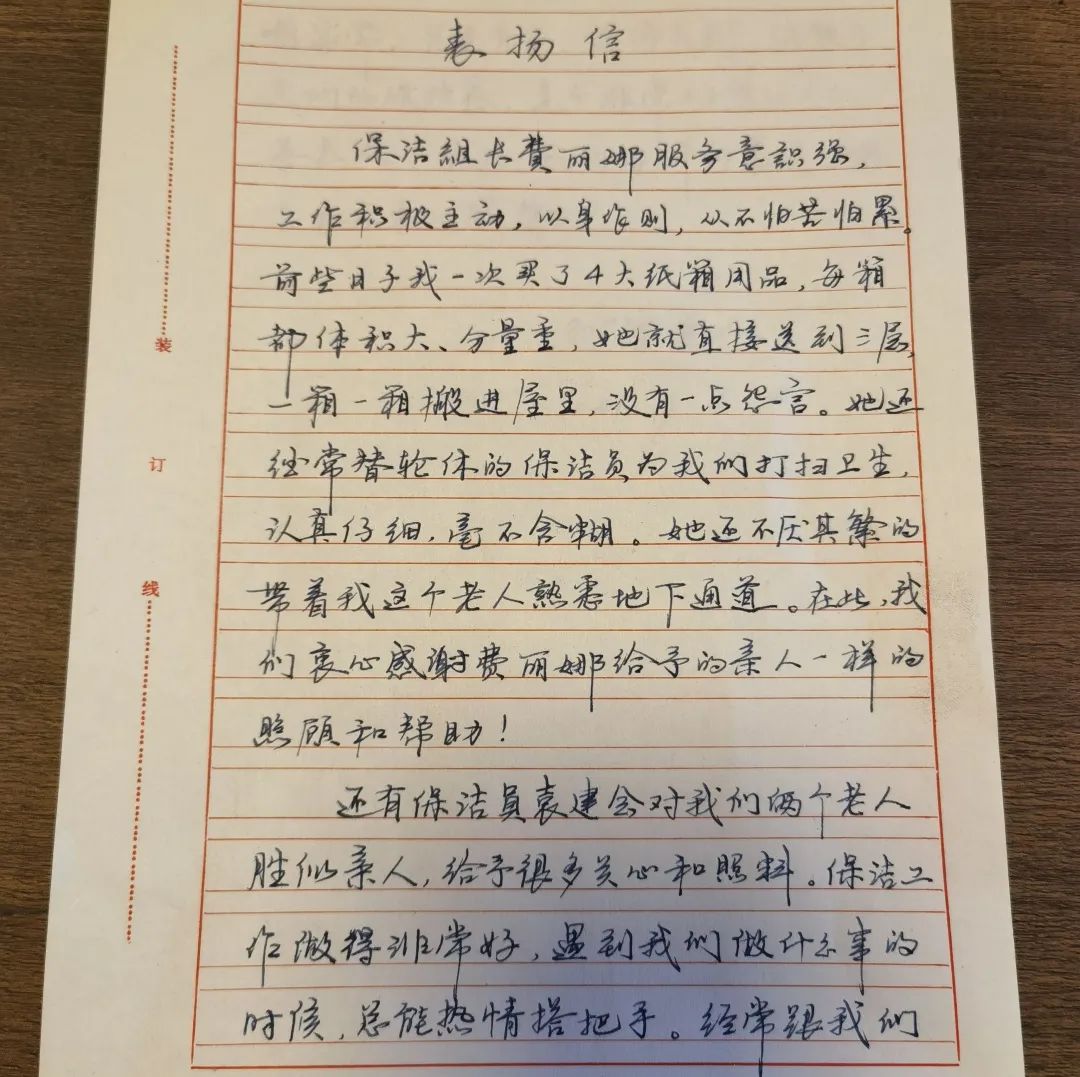 表扬信
保洁組长費丽娜服务意識强，
工作积极主动，以身作则，从不怕苦怕累。
前些日子我一次买了4大纸箱用品，每箱
都体积大、分量重，她就直接送到三层，
一箱一箱搬进屋里，没有一点怨言。她还
经常替轮休的保洁员为我们打扫卫生，
认真仔细，毫不含糊。她还不厌其繁的
带着我这个老人熟悉地下通道。在此，我
们衷心感謝费丽娜给予的亲人一样的
照顾和帮助！
还有保洁員袁建会对我们俩个老人
胜似亲人，给予很多关心和照料。保洁工
作做得非常好，遇到我们做什么事的
时候，总能热情搭把手。经常跟我们
装
订
线